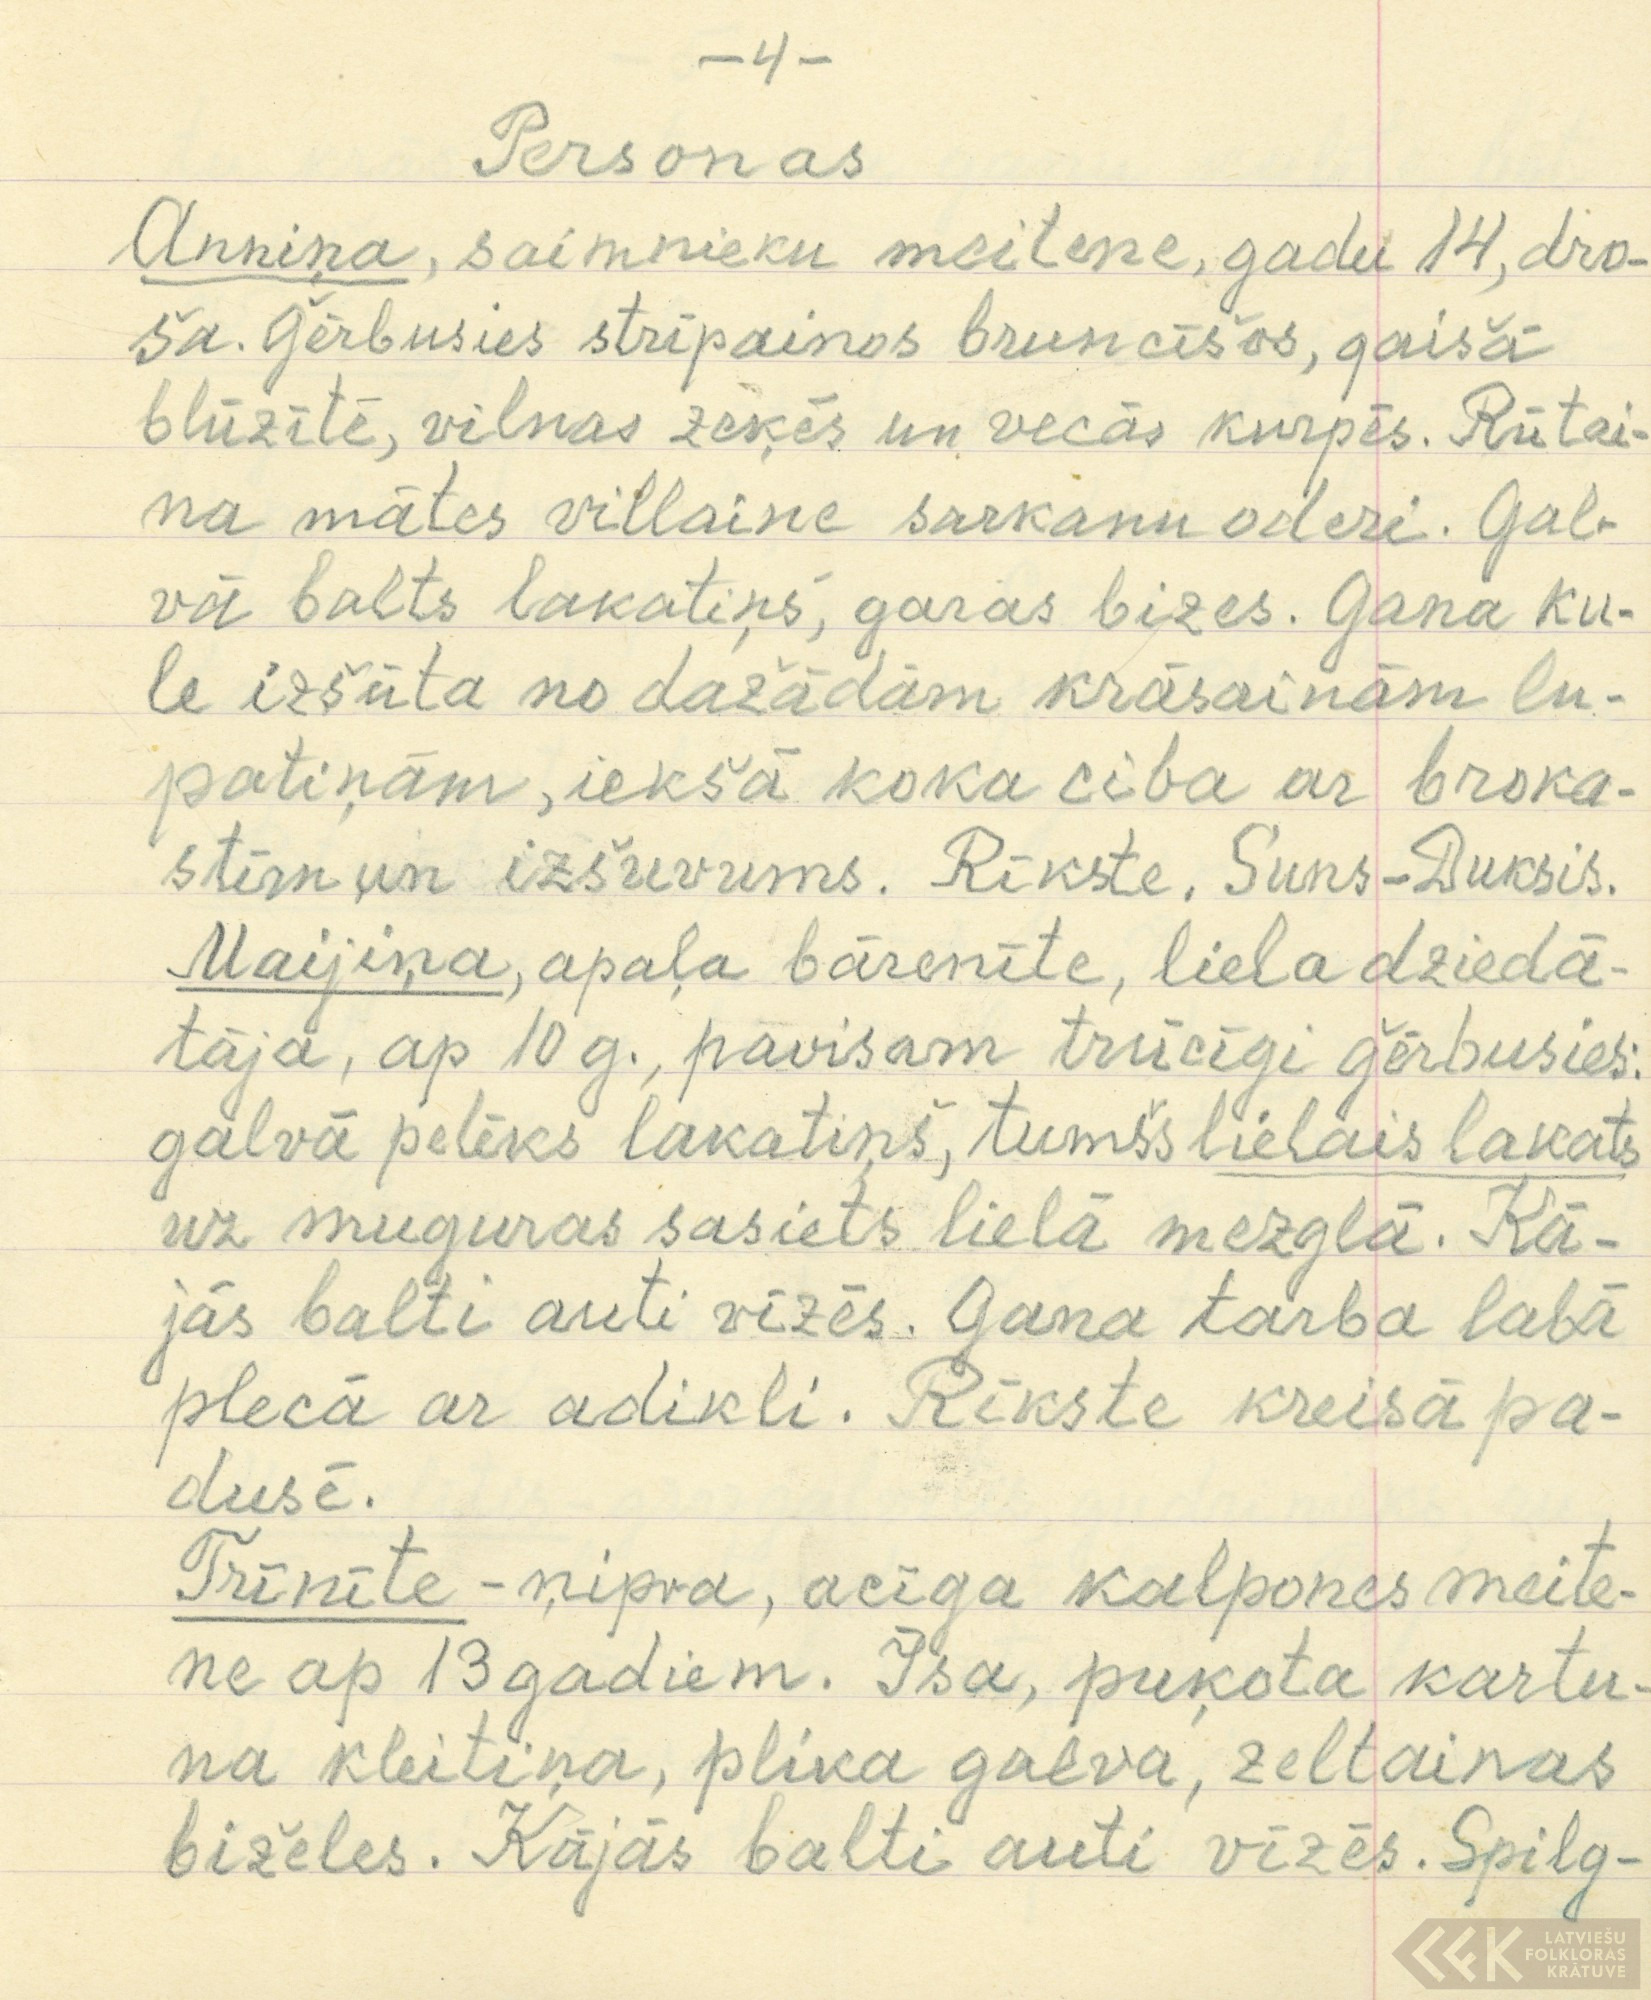 -4-
Personas
Anniņa, saimnieku meitene, gadu 14, dro-
ša. Ģērbusies strīpainos bruncīšos, gaišā
blūzītē, vilnas zeķēs un vecās kurpēs. Rūtai-
na mātes villaine sarkanu oderi. Gal-
vā balts lakatiņš, garas bizes. Gana ku-
le izšūta no dažādām krāsainām lu-
patiņām, iekšā koka ciba ar broka-
stīm un izšuvums. Rīkste. Suns-Duksis.
Maijiņa, apaļa bārenīte, liela dziedā-
tāja, ap 10 g., pavisam trūcīgi ģērbusies:
galvā pelēks lakatiņš, tumšs lielais lakats
uz muguras sasiets lielā mezglā. Kā-
jās balti auti vīzēs. Gana tarba labā
plecā ar adikli. Rīkste kreisā pa-
dusē.
Trīnīte - ņipra, acīga kalpones meite-
ne ap 13 gadiem. Īsa, puķota kartu-
na kleitiņa, plika galva, zeltainas
biželes. Kājās balti auti vīzēs. Spilg-
LATVIEŠU
FOLKLORAS
KRĀTUVE